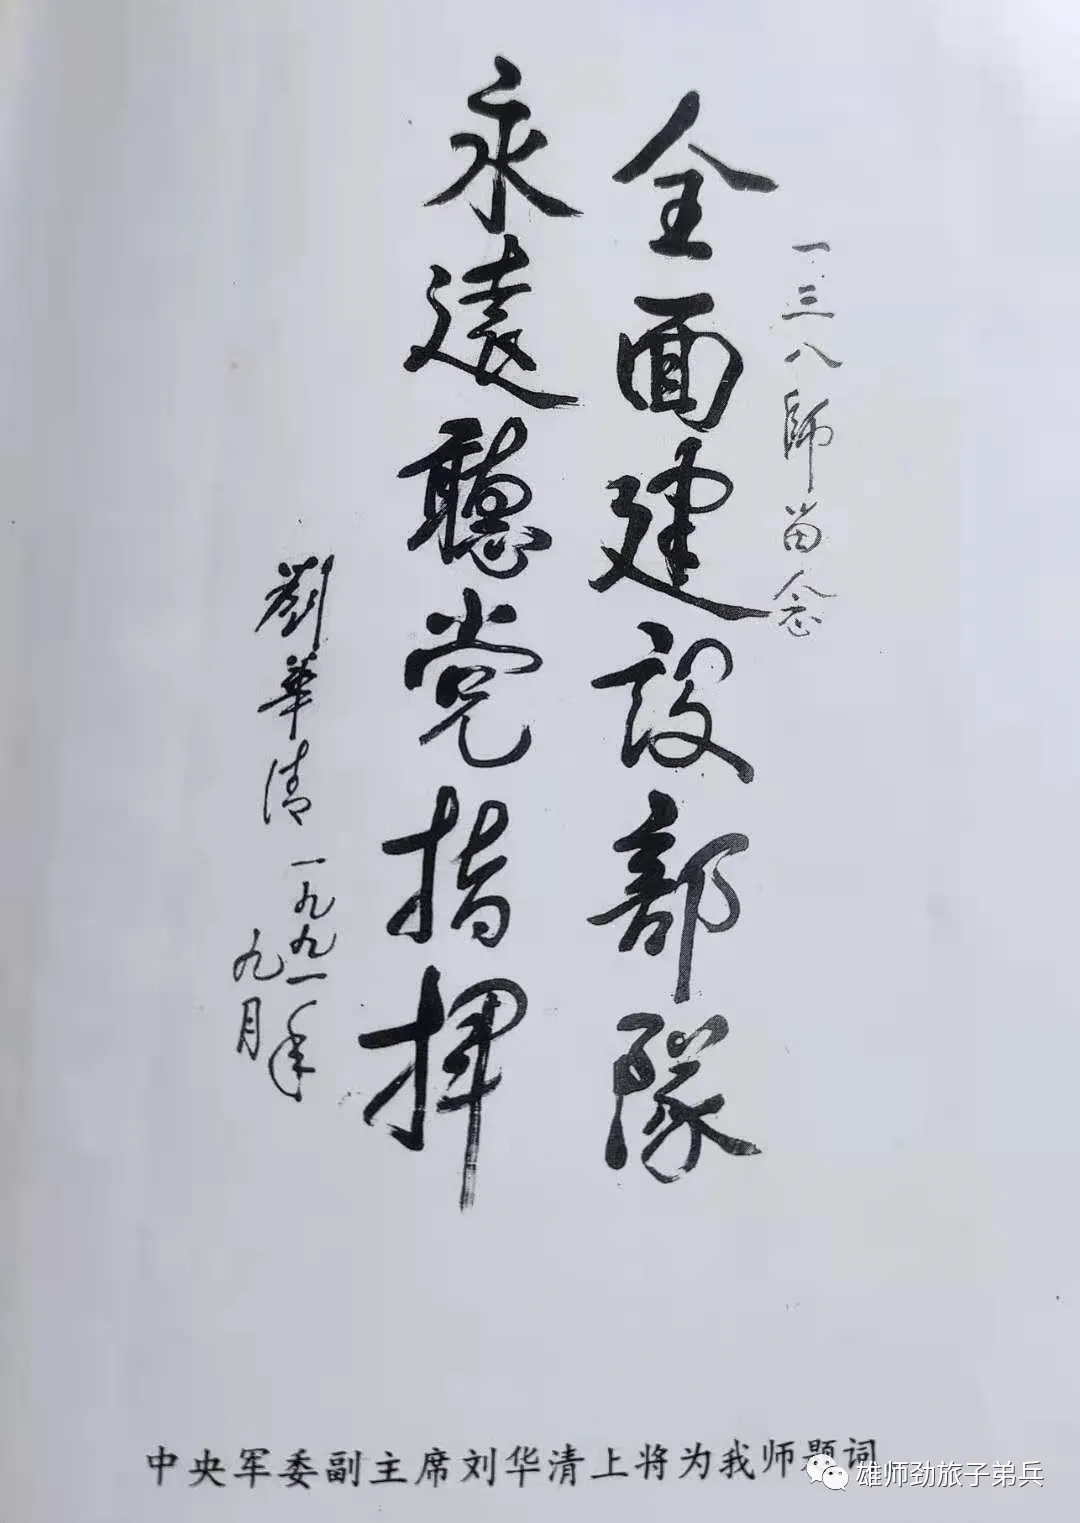 一三八師留念
全面建設部隊
永遠聽党指挥
劉華清 一九九一年
九月
中央军委副主席刘华清上将为我师题词
雄师劲旅子弟兵